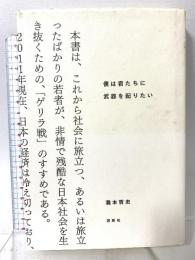 僕は君たちに
武器を配りたい
瀧本哲史
講談社
本書は、これから社会に旅立つ、あるいは旅立
ったばかりの若者が、非情で残酷な日本社会を生
き抜くための、「ゲリラ戦」のすすめである。
2011年現在、日本の経済は冷え切っており、